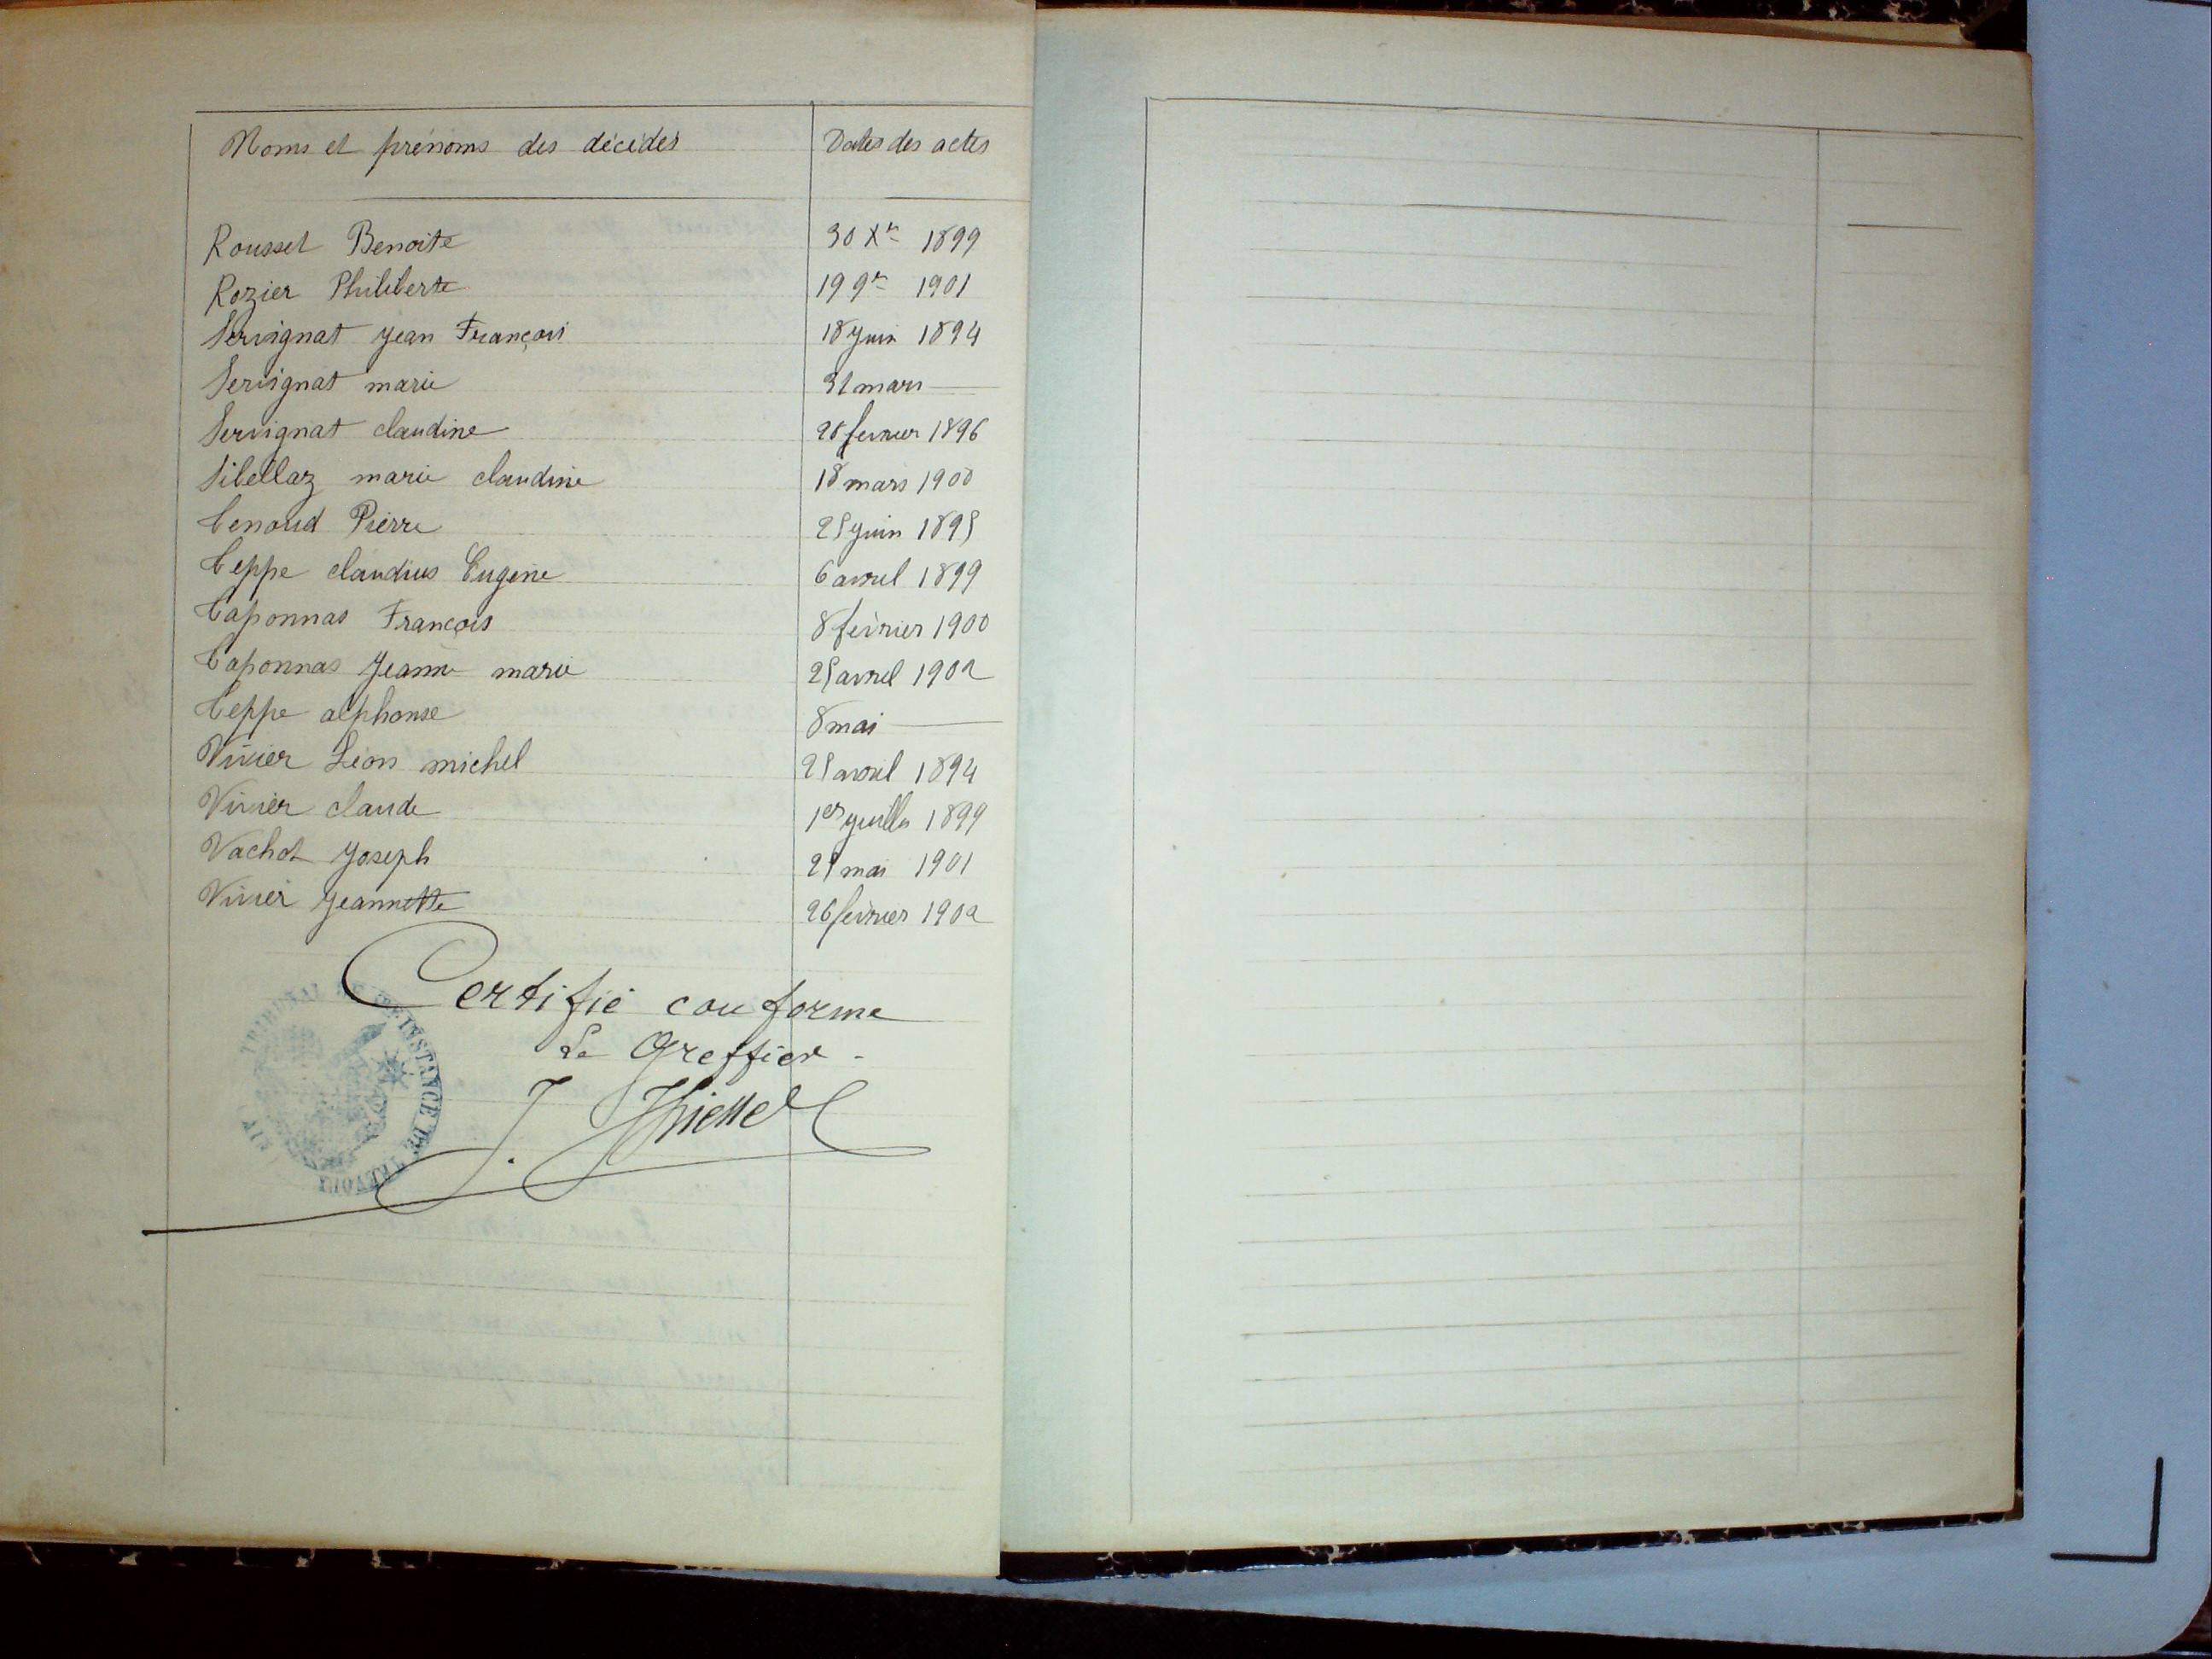 Noms et prénoms des décédés Dates des actes
Rousset Benoite 30 Xre 1899
Rozier Philiberte 19 9re 1901
Servignat Jean François 18 Juin 1894
Servignat marie 31 mars —
Servignat claudine 28 février 1896
Sibellaz marie claudine 18 mars 1900
Tenoud Pierre 25 Juin 1895
Teppe claudius Eugène 6 avril 1899
Taponnas François 8 février 1900
Taponnas Jeanne marie 25 avril 1902
Teppe alphonse 8 mai —
Vivier Léon michel 25 avril 1894
Vivier claude 1er Juillet 1899
Vachot Joseph mai 1901
Vivier Jeannette 26 février 1902
Certifié conforme
Le Greffier
J.
INSTANCE DE TRÉVOUX